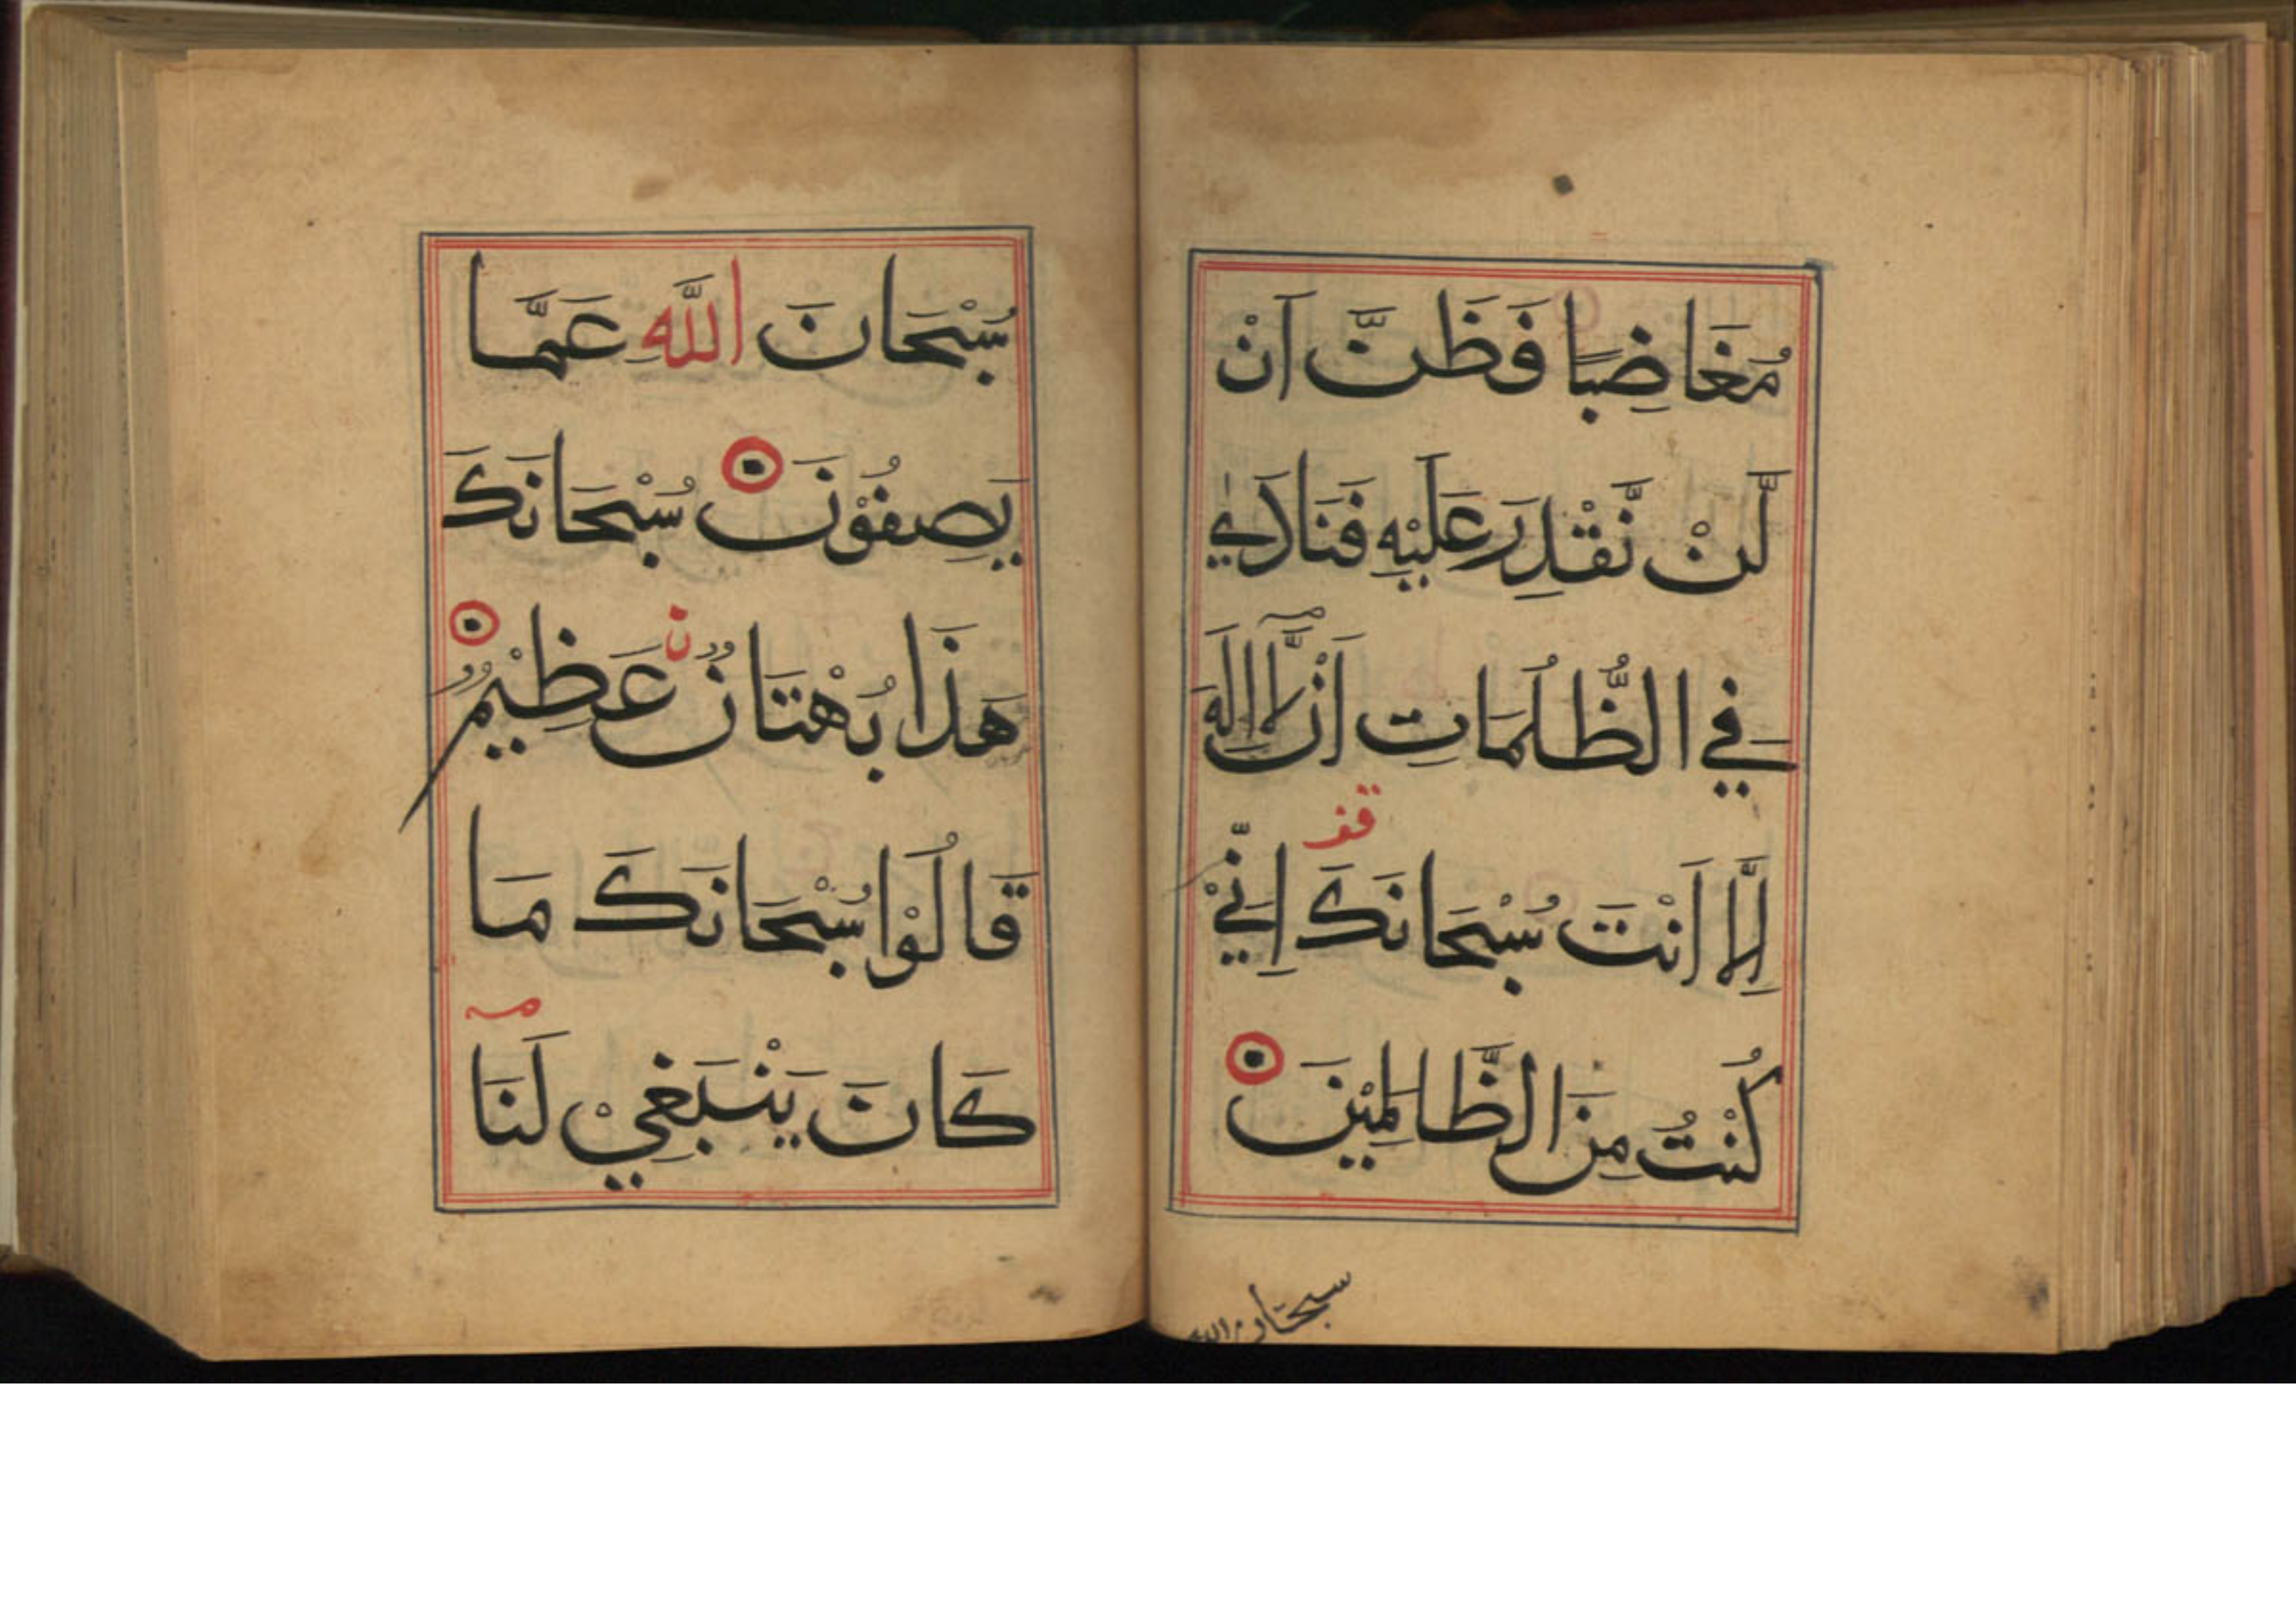 مُغَاضِبًا فَظَنَّ اَنْ
لَّنْ نَّقْدِرَ عَلَيْهِ فَنَادٰي
فِي الظُّلُمَاتِ اَنْ لَّآ اِلَهَ
اِلَّا اَنْتَ سُبْحَانَكَ اِنِّيْ
قف
كُنْتُ مِنَ الظَّالِمِيْنَ
سبحان الله
سُبْحَانَ اللَّهِ عَمَّا
يَصِفُوْنَ سُبْحَانَكَ
هَذَا بُهْتَانٌ عَظِيْمٌ
ن
قَالُوْا سُبْحَانَكَ مَا
كَانَ يَنْبَغِيْ لَنَا